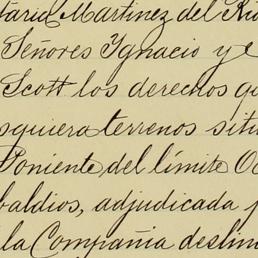 taria Martinez del Rio
Señores Ygnacio y e
Scott los derechos qu
squiera terrenos situ
Poniente del límite O
baldios, adjudicada p
la Compañia deslin